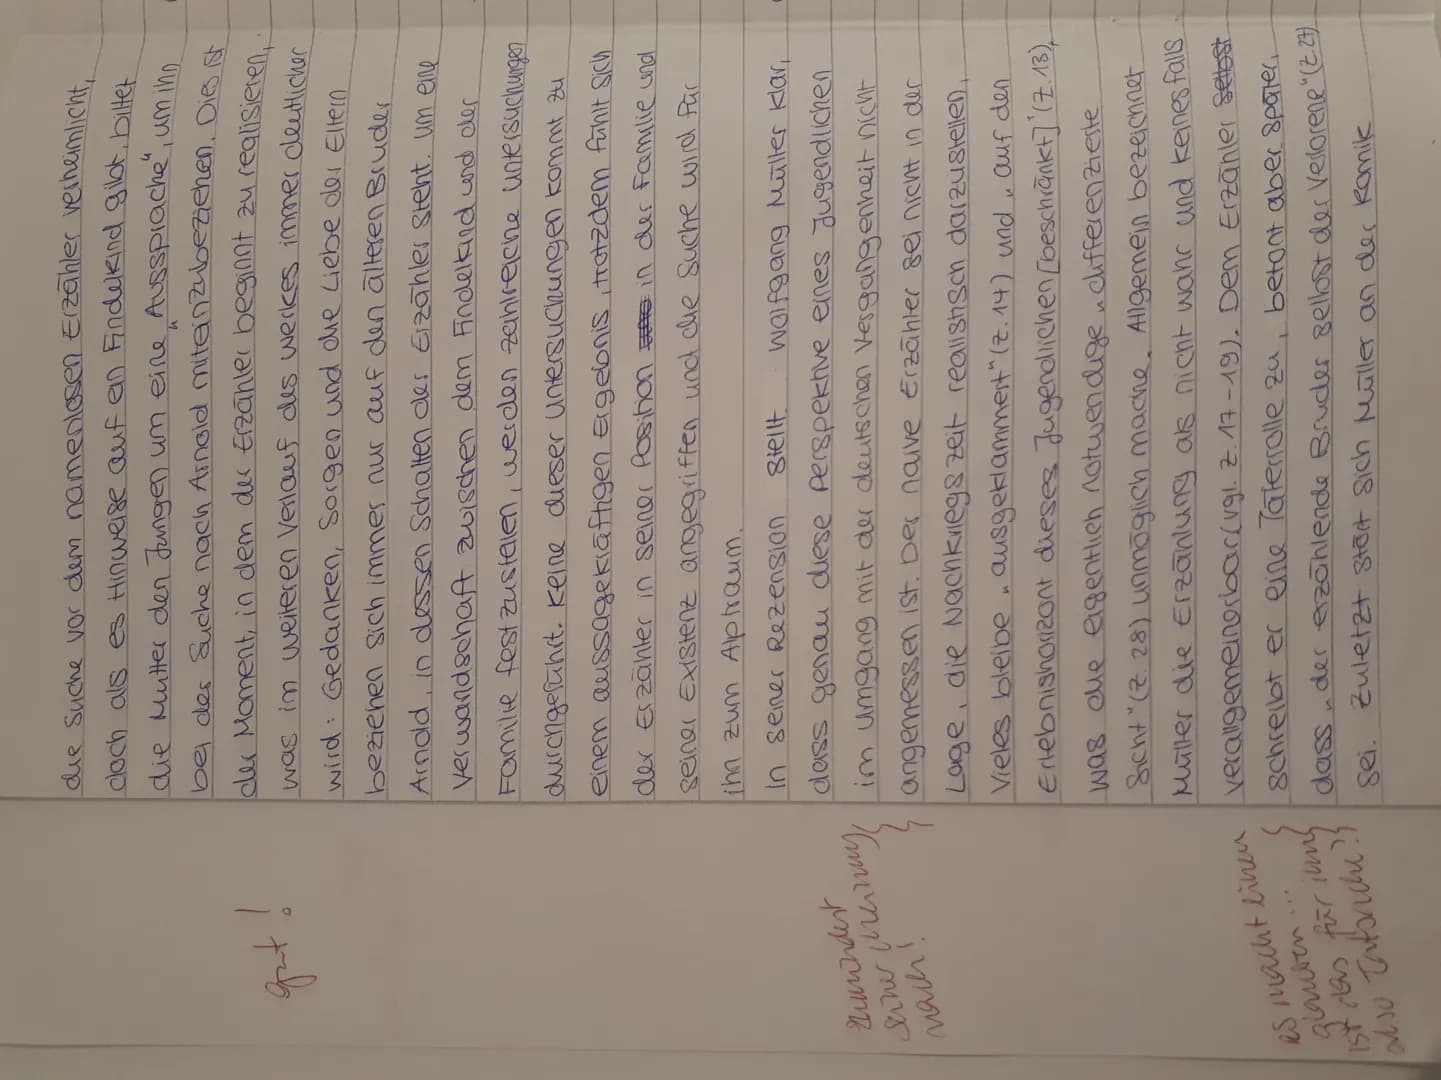 die Suche vor dem namenlosen Erzähler verheimlicht,
doch als es Hinweise auf ein Findelkind gibt, bittet
die Mutter den Jungen um eine „Aussprache“, um ihn
bei der Suche nach Arnold miteinzubeziehen. Dies ist
der Moment, in dem der Erzähler beginnt zu realisieren,
was im weiteren Verlauf des Werkes immer deutlicher
wird: Gedanken, Sorgen und die Liebe der Eltern
beziehen sich immer nur auf den älteren Bruder
Arnold, in dessen Schatten der Erzähler steht. Um eine
Verwandschaft zwischen dem Findelkind und der
Familie festzustellen, werden zahlreiche Untersuchungen
durchgeführt. Keine dieser Untersuchungen kommt zu
einem aussagekräftigen Ergebnis, trotzdem fühlt sich
der Erzähler in seiner Position in der Familie und
seiner Existenz angegriffen und die Suche wird für
ihn zum Alptraum.
In seiner Rezension stellt Wolfgang Müller klar,
dass genau diese Perspektive eines Jugendlichen
im Umgang mit der deutschen Vergangenheit nicht
angemessen ist. Der naive Erzähler sei nicht in der
Lage, die Nachkriegszeit realistisch darzustellen,
Vieles bleibe „ausgeklammert“ (Z. 14) und „auf den
Erlebnishorizont dieses Jugendlichen [beschränkt]“ (Z. 13),
was die eigentlich notwendige „differenzierte
Sicht“ (Z. 28) unmöglich mache. Allgemein bezeichnet
Müller die Erzählung als nicht wahr und keinesfalls
verallgemeinerbar (vgl. Z. 17-19). Dem Erzähler selbst
schreibt er eine Täterrolle zu, betont aber später,
dass „der erzählende Bruder selbst der Verlorene“ (Z. 27)
sei. Zuletzt stört sich Müller an der Komik
gut!
zumindest
seiner Meinung
nach!
es macht einen
glauben...
ist das für ihn
also